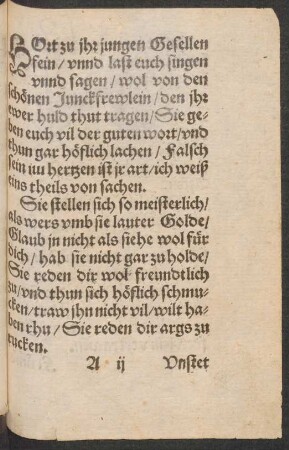 HOrt zu jhr jungen Gesellen
fein / vnnd last euch singen
vnnd sagen / wol von den
schönen Junckfrewlein / den jhr
ewer huld thut tragen / Sie ge-
ben euch vil der guten wort / vnd
thun gar höflich lachen / Falsch
sein im hertzen ist jr art / ich weiß
eins theils von sachen.
Sie stellen sich so meisterlich /
als wers vmb sie lauter Golde /
Glaub jn nicht als siehe wol für
dich / hab sie nicht gar zu holde /
Sie reden dir wol freundtlich
zu / vnd thun sich höflich schmu-
cken / traw jhn nicht vil / wilt ha-
ben rhu / Sie reden dir args zu
rucken.
A ij Vnstet